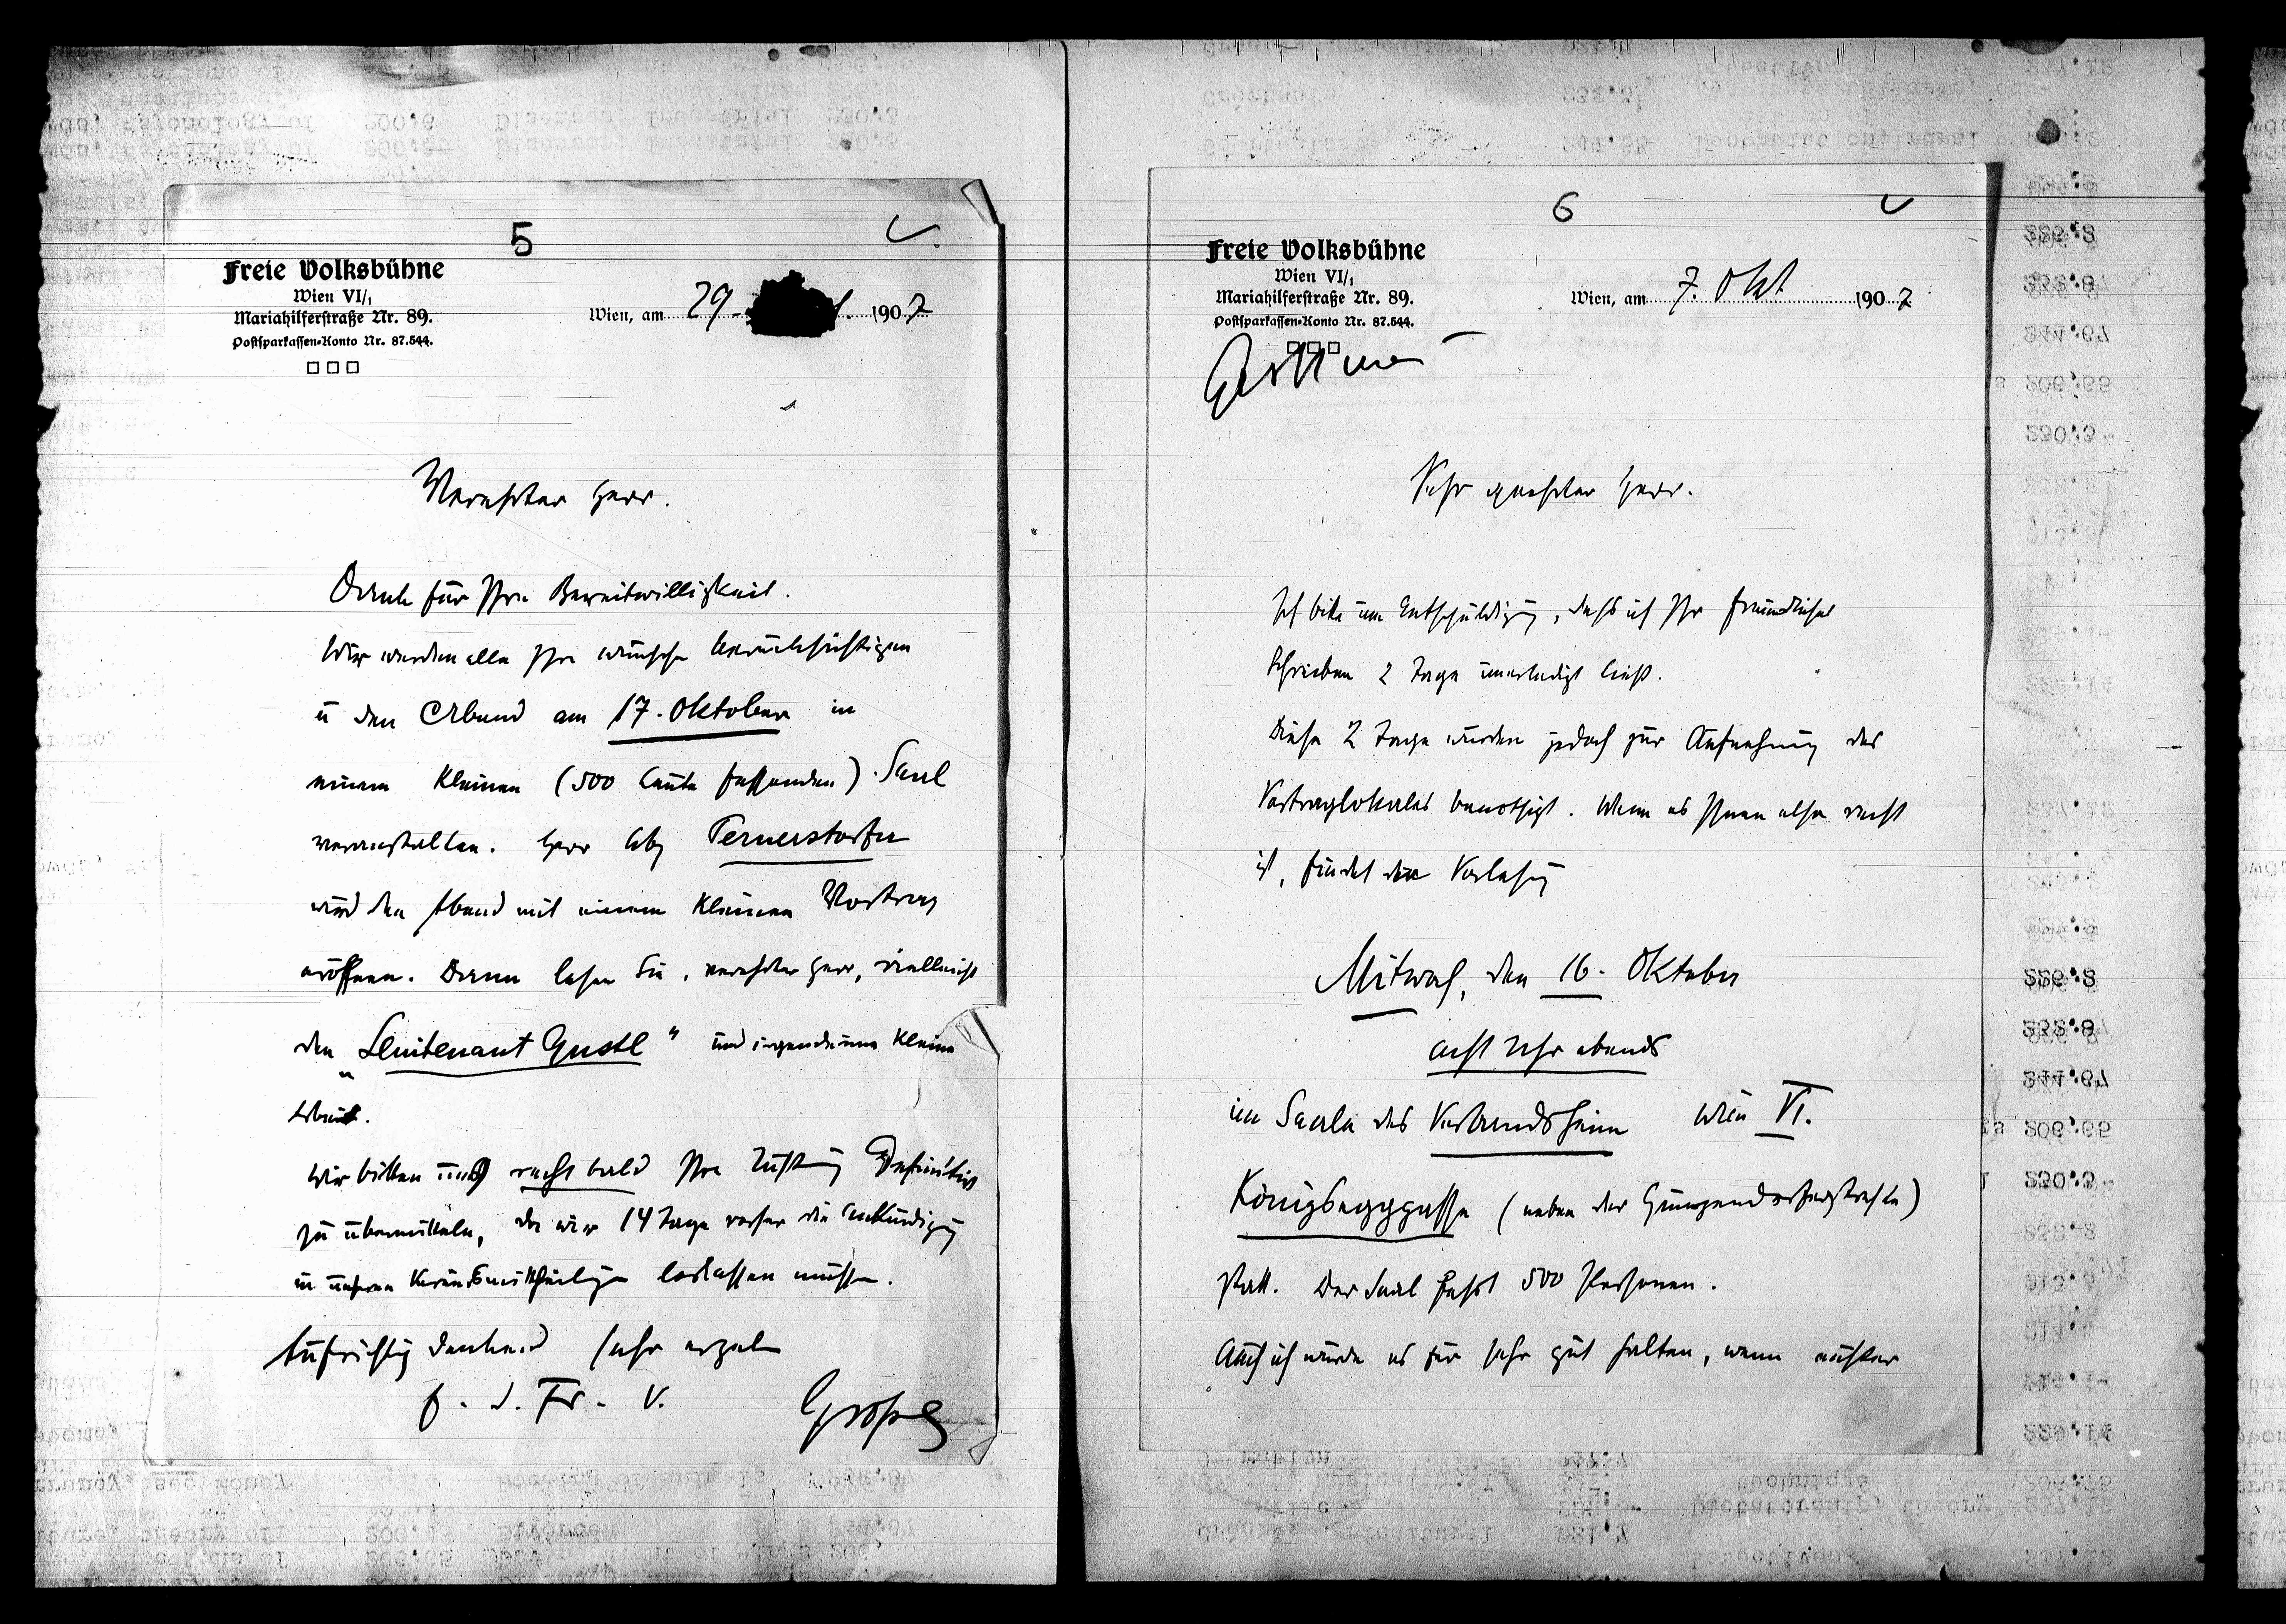 5
Freie Volksbühne
Wien VI/1
Mariahilferstraße Nr. 89.
Postsparkassen-Konto Nr. 87.544.
Wien, am 29. 1907
Verehrter Herr.
Dank für Ihre Bereitwilligkeit.
Wir werden alle Ihre Wünsche berücksichtigen
u den Abend am 17. Oktober in
einem kleinen (500 Leute fassenden) Saal
veranstalten. Herr Abg Pernerstorfer
wird den Abend mit einem kleinen Vortrag
eröffnen. Dann lesen Sie, verehrter Herr, vielleicht
den „Leutenant Gustl" und irgendeine kleine
Wir bitten uns recht bald Ihre Definitiv
zu übermitteln, da wir 14 Tage vorher die Ankündigung
in unseren loslassen müssen.
Aufrichtig dankend sehr ergeb
f. d. Fr. V.
Großm
6
Freie Volksbühne
Wien VI/1
Mariahilferstraße Nr. 89.
Postsparkassen-Konto Nr. 87.544.
Wien, am 7. Okt 1907
Sehr geehrter Herr.
Ich bitte um Entschuldigung, dass ich Ihr freundliches
Schreiben 2 Tage unerledigt ließ.
Diese 2 Tage wurden jedoch zur Aufnehmung des
Vortraglokales benötigt. Wenn es Ihnen also recht
ist, findet die Vorlesung
Mitwoch, den 16. Oktober
acht Uhr abends
im Saale des Verbandsheim Wien VI.
Königseggasse (neben der Gumpendorferstraße)
statt. Der Saal fasst 500 Personen.
Auch ich würde es für sehr gut halten, wenn